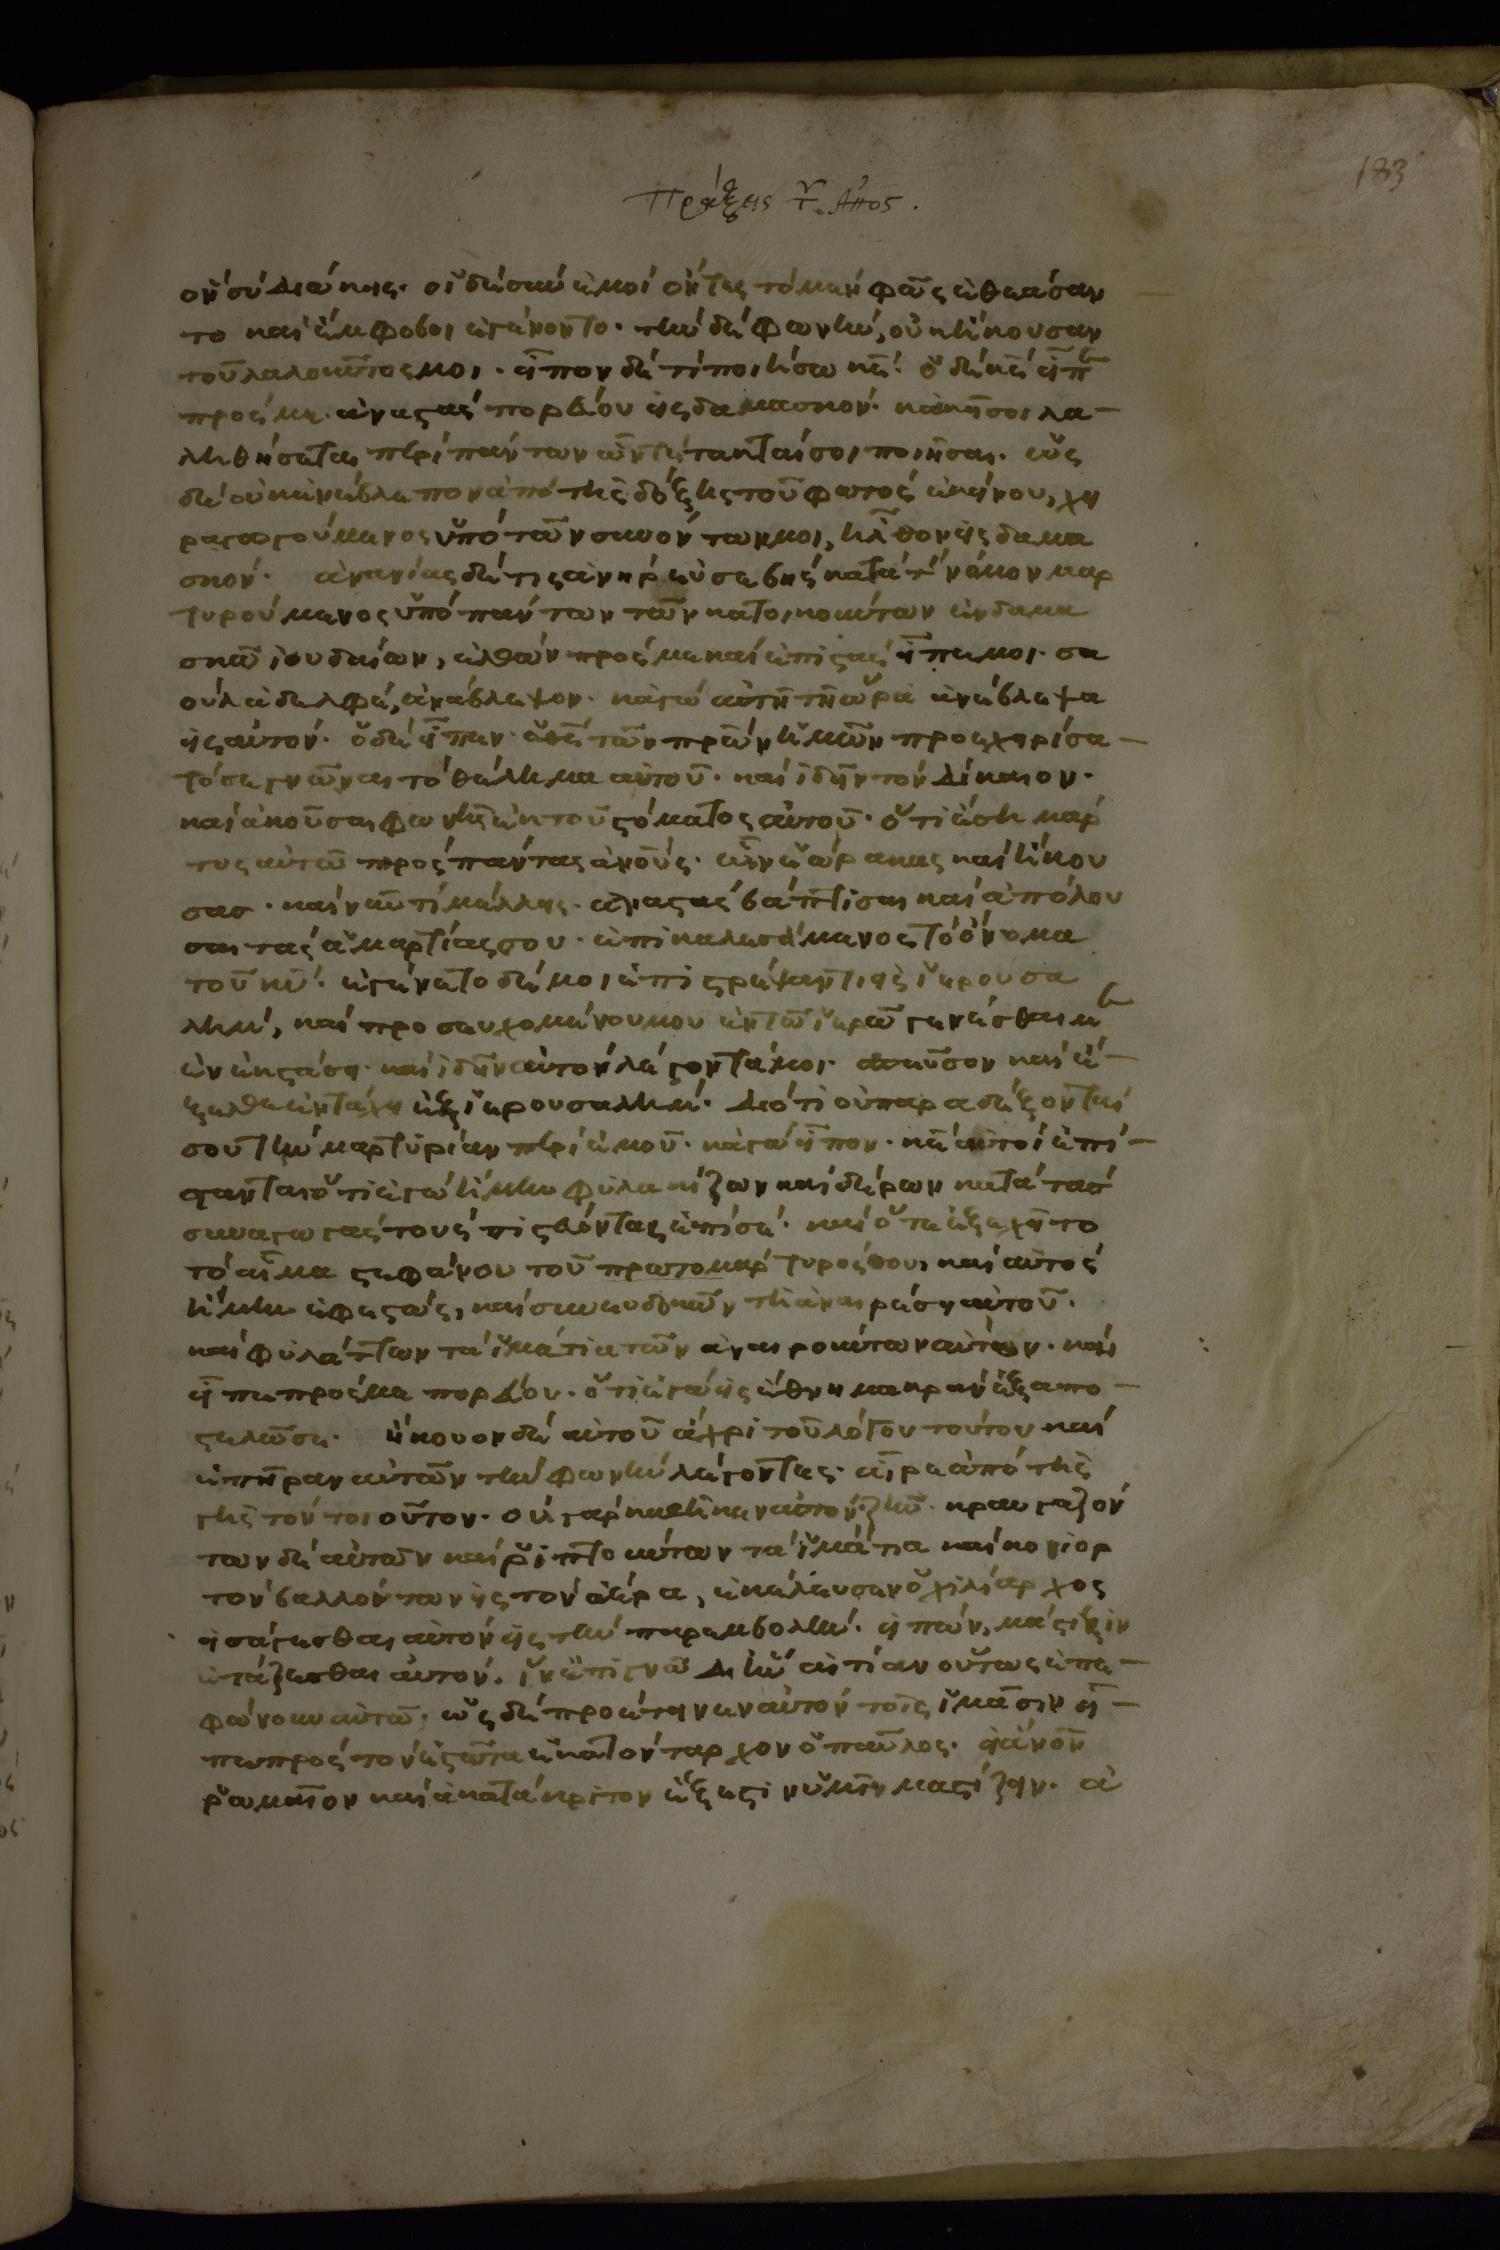 183
Πράξεις τ. Ἀπος.
ὃν σὺ διώκεις. οἱ δὲ σὺν ἐμοὶ ὄντες τὸ μὲν φῶς ἐθεάσαν
το καὶ ἔμφοβοι ἐγένοντο. τὴν δὲ φωνὴν, οὐκ ἤκουσαν
τοῦ λαλοῦντός μοι. εἶπον δὲ τί ποιήσω κε̅. ὁ δὲ κς̅ εἶπ
πρός με. ἀναστὰς πορεύου εἰς δαμασκόν. κἀκεῖ σοι λα
ληθήσεται περὶ πάντων ὧν τέτακταί σοι ποιῆσαι. ὡς
δὲ οὐκ ἐνέβλεπον ἀπὸ τῆς δόξης τοῦ φωτὸς ἐκείνου, χει
ραγωγούμενος ὑπὸ τῶν συνόντων μοι, ἦλθον εἰς δαμα
σκόν. ἀνανίας δέ τις ἀνὴρ εὐσεβὴς κατὰ τ νόμον μαρ
τυρούμενος ὑπὸ πάντων τῶν κατοικούντων ἐν δαμα
σκῶ ἰουδαίων, ἐλθὼν πρός με καὶ ἐπιστὰς εἶπε μοι. σα
οὺλ ἀδελφέ, ἀνάβλεψον. κἀγὼ αὐτῆ τῆ ὥρα ἀνέβλεψα
εἰς αὐτόν. ὁ δὲ εἶπεν. ὁ θς̅ τῶν πρων̅ ἡμῶν προεχειρίσα
τό σε γνῶναι τὸ θέλημα αὐτοῦ. καὶ ἰδεῖν τὸν δίκαιον.
καὶ ἀκοῦσαι φωνὴν ἐκ τοῦ στόματος αὐτοῦ. ὅτι ἔση μάρ
τυς αὐτῶ πρὸς πάντας ἀνους̅. ὧν ἑώρακας καὶ ἤκου
σας. καὶ νῦν τί μέλλεις. ἀναστὰς βάπτισαι καὶ ἀπόλου
σαι τὰς ἁμαρτίας σου. ἐπικαλεσάμενος τὸ ὄνομα
τοῦ κυ̅. ἐγένετο δέ μοι ἐπιστρέψαντι εἰς ἱερουσα
λὴμ, καὶ προσευχομένου μου ἐν τῶ ἱερῶ γενέσθαι μ
ἐν ἐκστάσει. καὶ ἰδεῖν αὐτὸν λέγοντά μοι. σπεῦσον καὶ ἔ
ξελθε ἐν τάχει ἐξ ἱερουσαλήμ. διότι οὐ παραδέξονταί
σου τὴν μαρτυρίαν περὶ ἐμοῦ. κἀγὼ εἶπον. κε̅ αὐτοὶ ἐπί
στανται ὅτι ἐγὼ ἤμην φυλακίζων καὶ δέρων κατὰ τὰς
συναγωγὰς τοὺς πιστεύοντας ἐπὶ σέ. καὶ ὅτε ἐξεχεῖτο
τὸ αἷμα στεφάνου τοῦ πρωτομάρτυρός σου, καὶ αὐτὸς
ἤμην ἐφεστὼς, καὶ συνευδοκῶν τῆ ἀναιρέσει αὐτοῦ.
καὶ φυλάττων τὰ ἱμάτια τῶν ἀναιρούντων αὐτόν. καὶ
εἶπε πρός με πορεύου. ὅτι ἐγὼ εἰς ἔθνη μακρὰν ἐξαπο
στελῶ σε. ἤκουον δὲ αὐτοῦ ἄχρι τοῦ λόγου τούτου καὶ
ἐπῆραν αὐτῶν τὴν φωνὴν λέγοντες. αἶρε ἀπὸ τῆς
γῆς τὸν τοιοῦτον. οὐ γὰρ καθῆκεν αὐτὸν ζῆν. κραυγαζόν
των δὲ αὐτῶν καὶ ῥιπτούντων τὰ ἱμάτια καὶ κονιορ
τὸν βαλλόντων εἰς τὸν ἀέρα, ἐκέλευσεν ὁ χιλίαρχος
εἰσάγεσθαι αὐτὸν εἰς τὴν παρεμβολήν. εἰπὼν, μάστιξιν
ἐτάζεσθαι αὐτόν. ἵν ἐπιγνῶ δι ἣν αἰτίαν οὕτως ἐπε
φώνουν αὐτῶ. ὡς δὲ προέτεινεν αὐτὸν τοῖς ἱμᾶσιν εἶ
πε πρὸς τὸν ἑστῶτα ἑκατόνταρχον ὁ παῦλος. εἰ ἀνον̅
ῥωμαῖον καὶ ἀκατάκριτον ἔξεστιν ὑμῖν μαστίζειν. ἀ